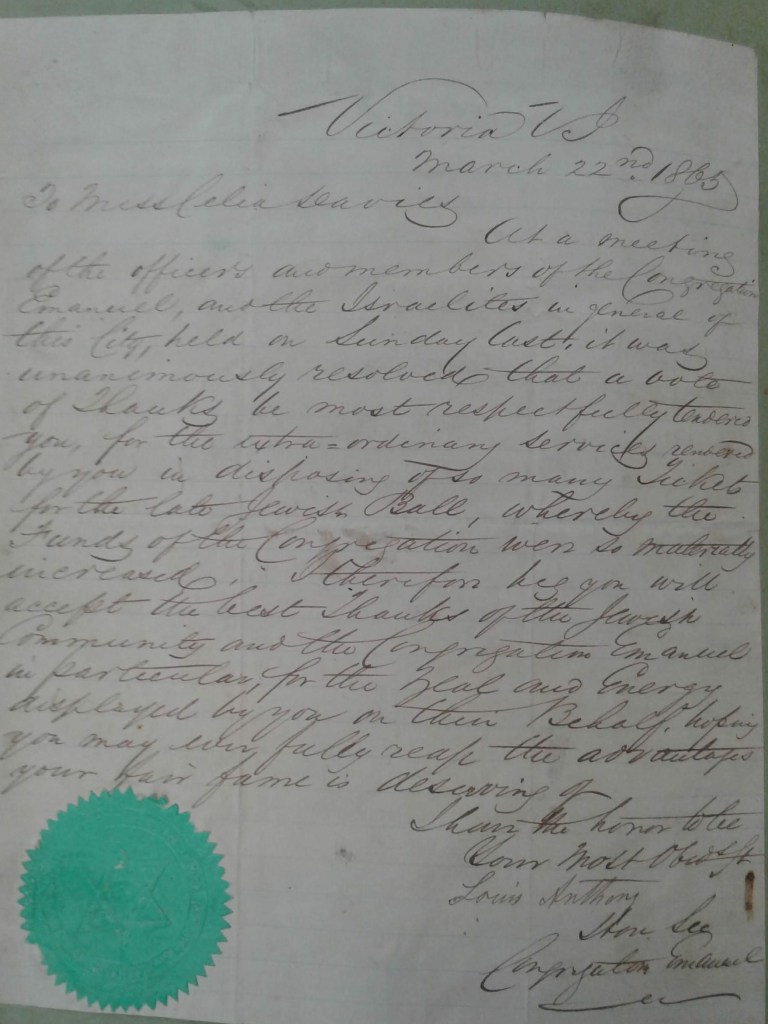 Victoria VI
March 22nd. 1865
To Miss Celia Davies
At a meeting
of the officers and members of the Congregation
Emanuel, and the Israelites in general of
this City, held on Sunday last, it was
unanimously resolved that a vote
of Thanks be most respectfully tendered
you, for the extra=ordinary services rendered
by you in disposing of so many Tickets
for the late Jewish Ball, whereby the
Funds of the Congregation were so materially
increased. I therefore beg you will
accept the best Thanks of the Jewish
Community and the Congregation Emanuel
in particular, for the zeal and Energy
displayed by you on their Behalf, hoping
you may ever fully reap the advantages
your fair fame is deserving of
I have the honor to be
Your Most Obedt St
Louis Anthony
Hon. Sec
Congregation Emanuel